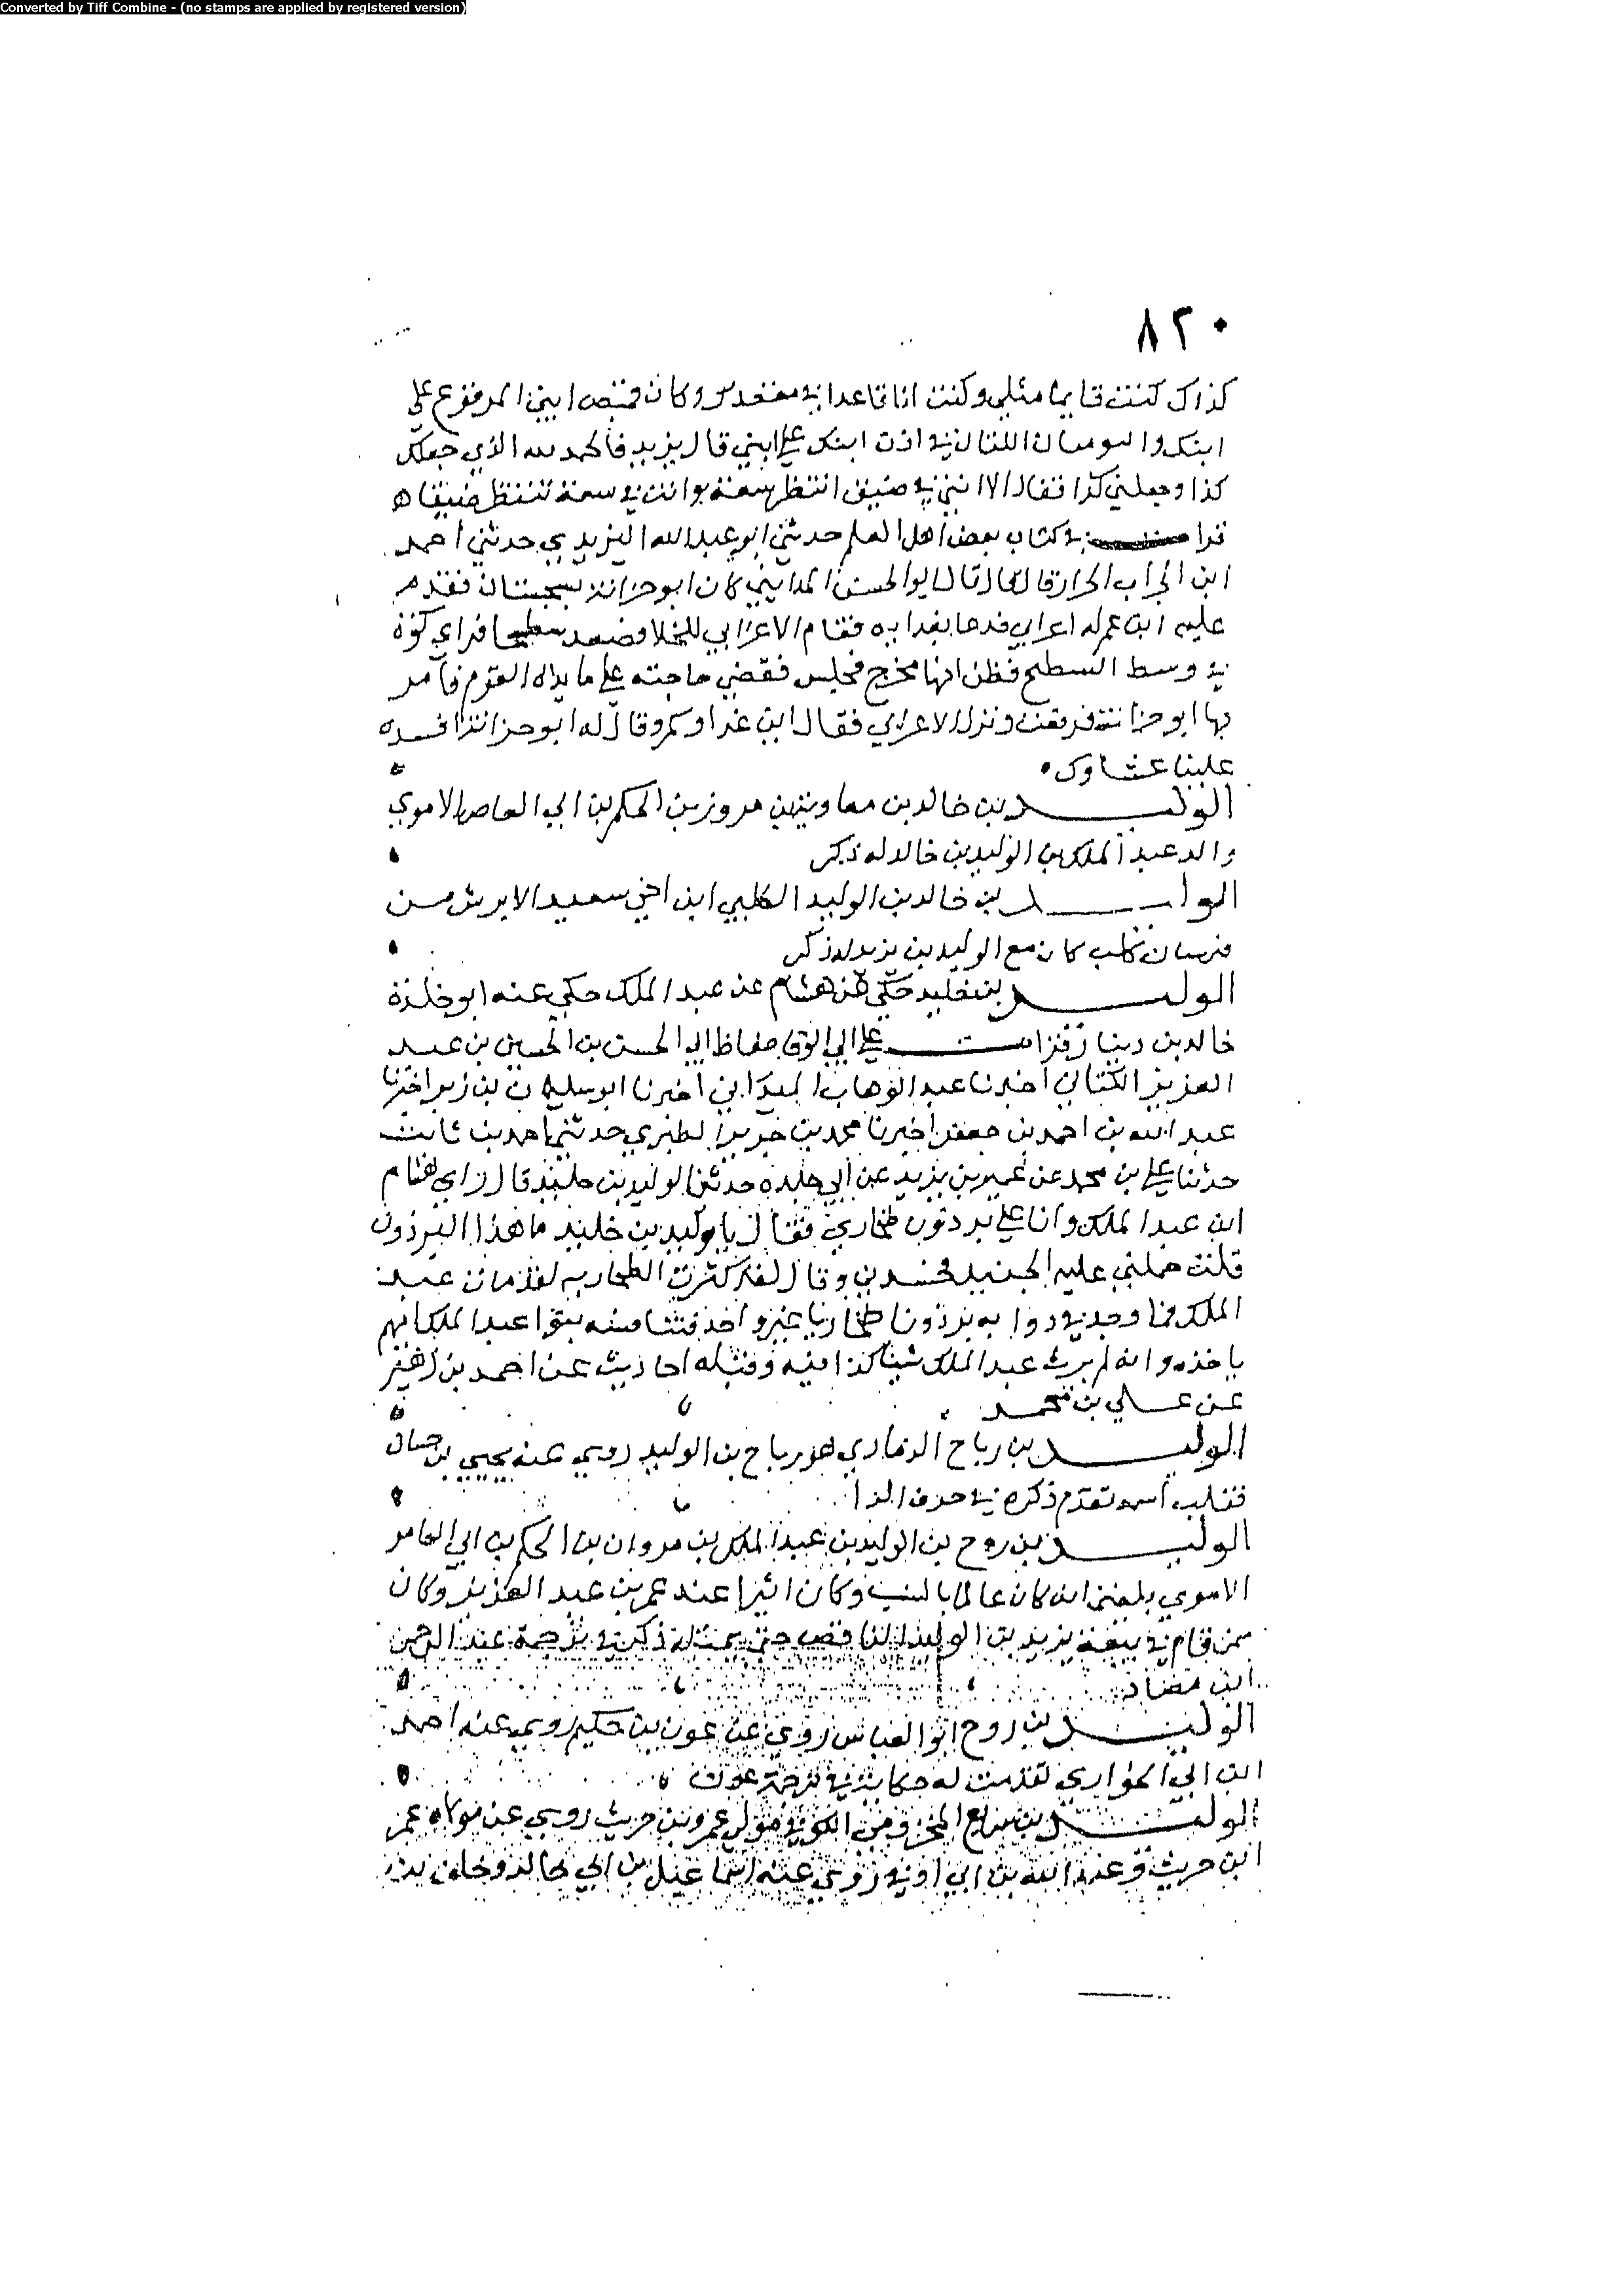 Converted by Tiff Combine - (no stamps are applied by registered version)
٨٢٠
كذاك كنت قايما مثلي وكنت انا قاعدا في مقعدك وكان قميص ابني المرفوع على
ابنك والومسان اللتان في اذن ابنك على ابني قال يزيد فالحمد لله الذي جعلك
كذا وجعلني كذا فقال الا انني في ضيق انتظر سعة وانت في سعة تنتظر ضيقا ه
قرات في كتاب بعض اهل العلم حدثني ابو عبد الله اليزيدي حدثني احمد
ابن الحراز قال قال ابو الحسن المدايني كان ابو حزانة بسجستان فقدم
عليه ابن عم له اعرابي فدعا بغدايه فقام الاعرابي للخلا فصعد سطحا فراى كوة
في وسط السطح فظن انها مخرج فجلس فقضى حاجته على مايدة القوم فامر
بها ابو حزانة فرفعت ونزل الاعرابي فقال اين غداوكم وقال له ابو حزانة افسده
علينا عشاوك
الوليد بن خالد بن معاوية بن مروان بن الحكم بن ابي العاص الاموي
والد عبد الملك بن الوليد بن خالد له ذكر
الوليد بن خالد بن الوليد الكلبي ابن اخي سعيد الابرش من
فرسان كلب كان مع الوليد بن يزيد له ذكر
الوليد بن خليد حكى عن هشام بن عبد الملك حكى عنه ابو خلدة
خالد بن دينار قرات على ابي الوفا حفاظ ابي الحسن بن الحسين بن عبد
العزيز الكتاني اخبرنا عبد الوهاب الميداني اخبرنا ابو سليمان بن زبر اخبرنا
عبد الله بن احمد بن جعفر اخبرنا محمد بن جرير الطبري حدثني احمد بن ثابت
حدثنا علي بن محمد عن عمير بن يزيد عن ابي خلدة حدثني الوليد بن خليد قال راى هشام
ابن عبد الملك وانا على برذون طخاري فقال يا وليد بن خليد ما هذا البرذون
قلت حملني عليه الجنيد فحسدني وقال لقد كثرت الطخاريه لقد مات عبد
الملك فما وجد في دوابه برذونا طخاريا غير واحد فتنافسه بنو عبد الملك ايهم
ياخذه وانه لم يرث عبد الملك شيا كذا فيه وقبله احاديث عن احمد بن زهير
عن علي بن محمد
الوليد بن رباح الذماري هو رباح بن الوليد روى عنه يحيى بن حسان
فقلب اسمه تقدم ذكره في حرف الرا
الوليد بن روح بن الوليد بن عبد الملك بن مروان بن الحكم بن ابي العاص
الاموي بلغني انه كان عالما بالنسب وكان اثيرا عند عمر بن عبد العزيز وكان
ممن قام في بيعة يزيد بن الوليد الناقص حتى تمت له ذكرته في ترجمة عبد الرحمن
ابن مصاد
الوليد بن روح ابو العباس روى عن عون بن حكيم روى عنه احمد
ابن ابي الحواري تقدمت له حكاية في ترجمة عون
الوليد بن سريع المخزومي الكوفي مولى عمرو بن حريث روى عن مولاه عمر
ابن حريث وعبد الله بن ابي اوفى روى عنه اسماعيل بن ابي خالد وخلف بن